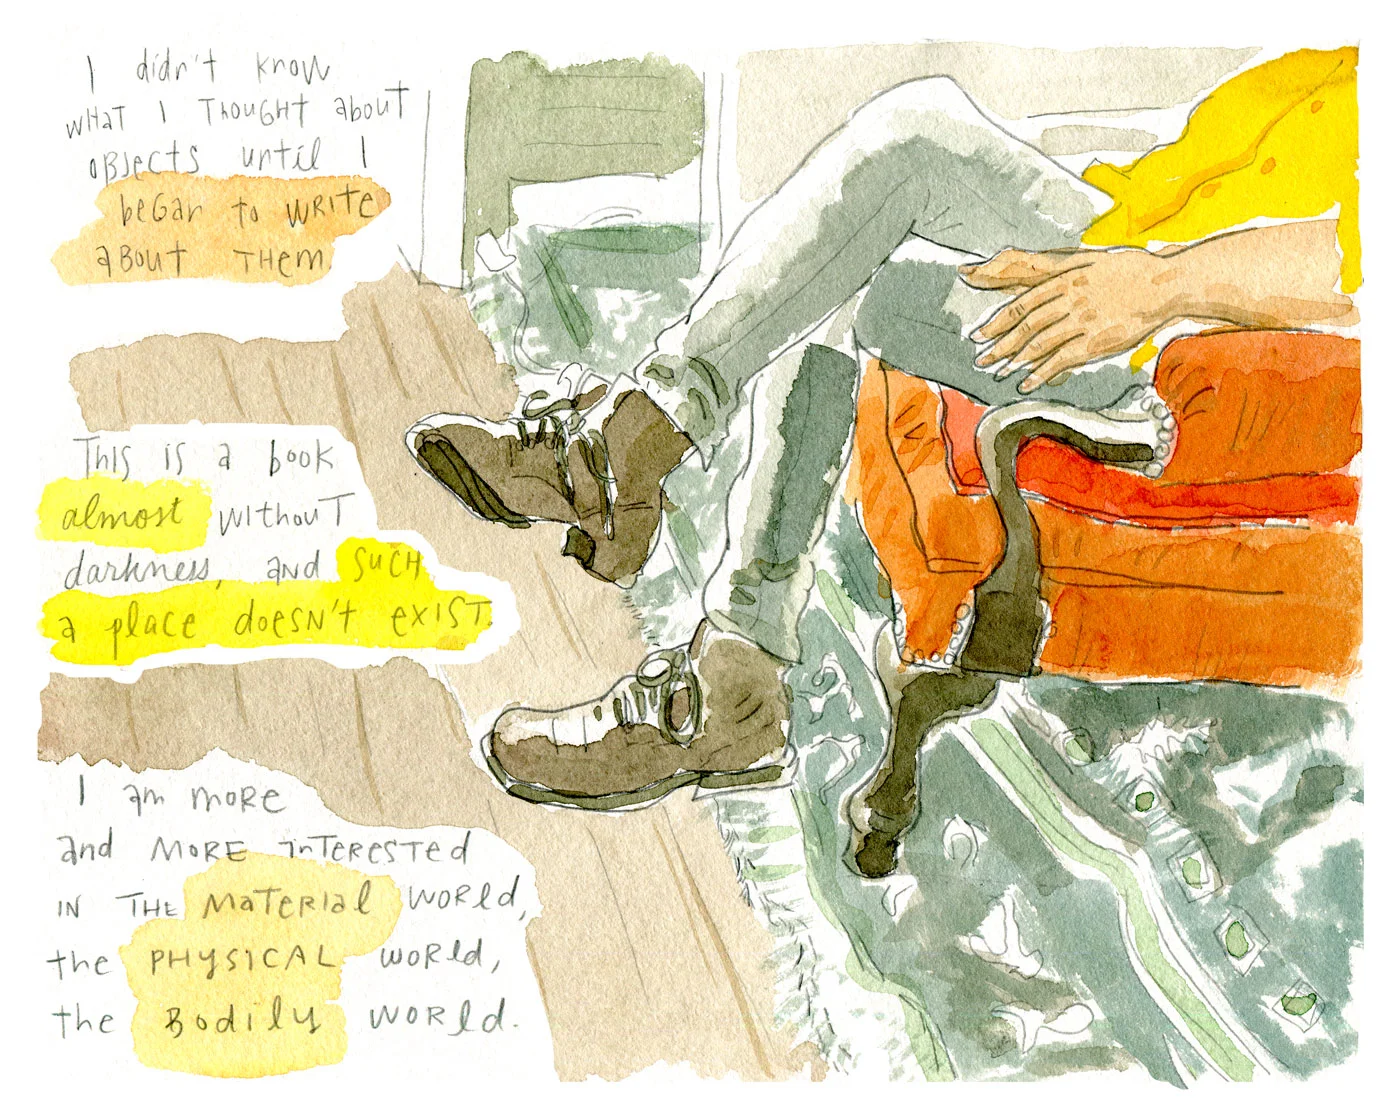 I didn't know
what I thought about
objects until I
began to write
about them
This is a book
almost without
darkness, and such
a place doesn't exist.
I am more
and more interested
in the material world,
the physical world,
the bodily world.